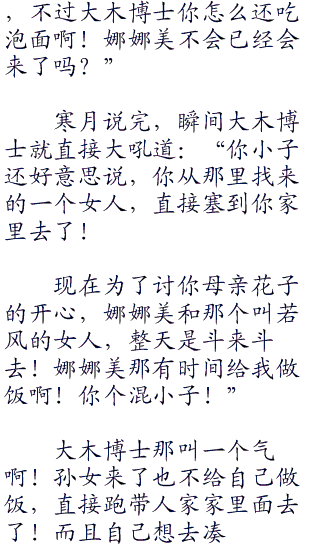 ，不过大木博士你怎么还吃
泡面啊！娜娜美不会已经会
来了吗？”
寒月说完，瞬间大木博
士就直接大吼道：“你小子
还好意思说，你从那里找来
的一个女人，直接塞到你家
里去了！
现在为了讨你母亲花子
的开心，娜娜美和那个叫若
风的女人，整天是斗来斗
去！娜娜美那有时间给我做
饭啊！你个混小子！”
大木博士那叫一个气
啊！孙女来了也不给自己做
饭，直接跑带人家家里面去
了！而且自己想去凑